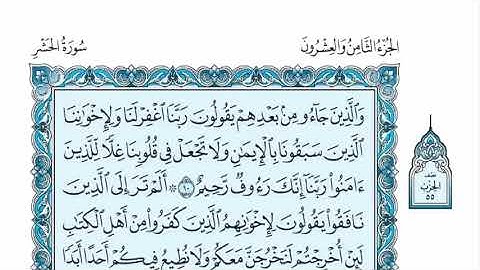 الجزء الثامن والعشرون
سورة الحشر
وَالَّذِينَ جَاءُو مِنْ بَعْدِهِمْ يَقُولُونَ رَبَّنَا اغْفِرْ لَنَا وَلِإِخْوَانِنَا
الَّذِينَ سَبَقُونَا بِالْإِيمَانِ وَلَا تَجْعَلْ فِي قُلُوبِنَا غِلًّا لِلَّذِينَ
ءَامَنُوا رَبَّنَا إِنَّكَ رَءُوفٌ رَحِيمٌ ١٠ ۞ أَلَمْ تَرَ إِلَى الَّذِينَ
نَافَقُوا يَقُولُونَ لِإِخْوَانِهِمُ الَّذِينَ كَفَرُوا مِنْ أَهْلِ الْكِتَابِ
لَئِنْ أُخْرِجْتُمْ لَنَخْرُجَنَّ مَعَكُمْ وَلَا نُطِيعُ فِيكُمْ أَحَدًا أَبَدًا
نصف
الحزب
٥٥